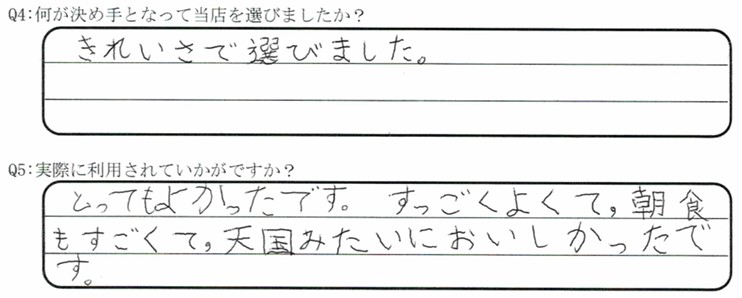 Q4:何が決め手となって当店を選びましたか？
きれいさで選びました。
Q5:実際に利用されていかがですか？
とってもよかったです。すっごくよくて,朝食
もすごくて,天国みたいにおいしかったで
す。